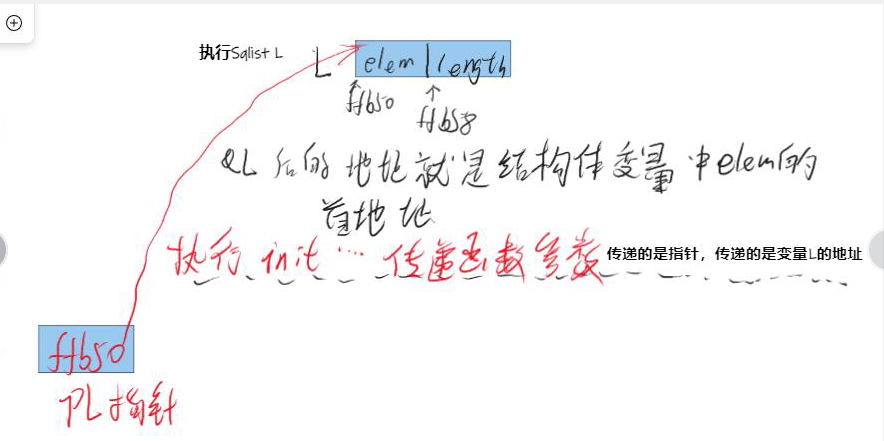 执行Sqlist L
L elem length
ffb50 ffb58
&L 后的 地址就是结构体变量中elem的
首地址
执行 init .... 传递函数参数 传递的是指针，传递的是变量L的地址
ffb50
PL指针